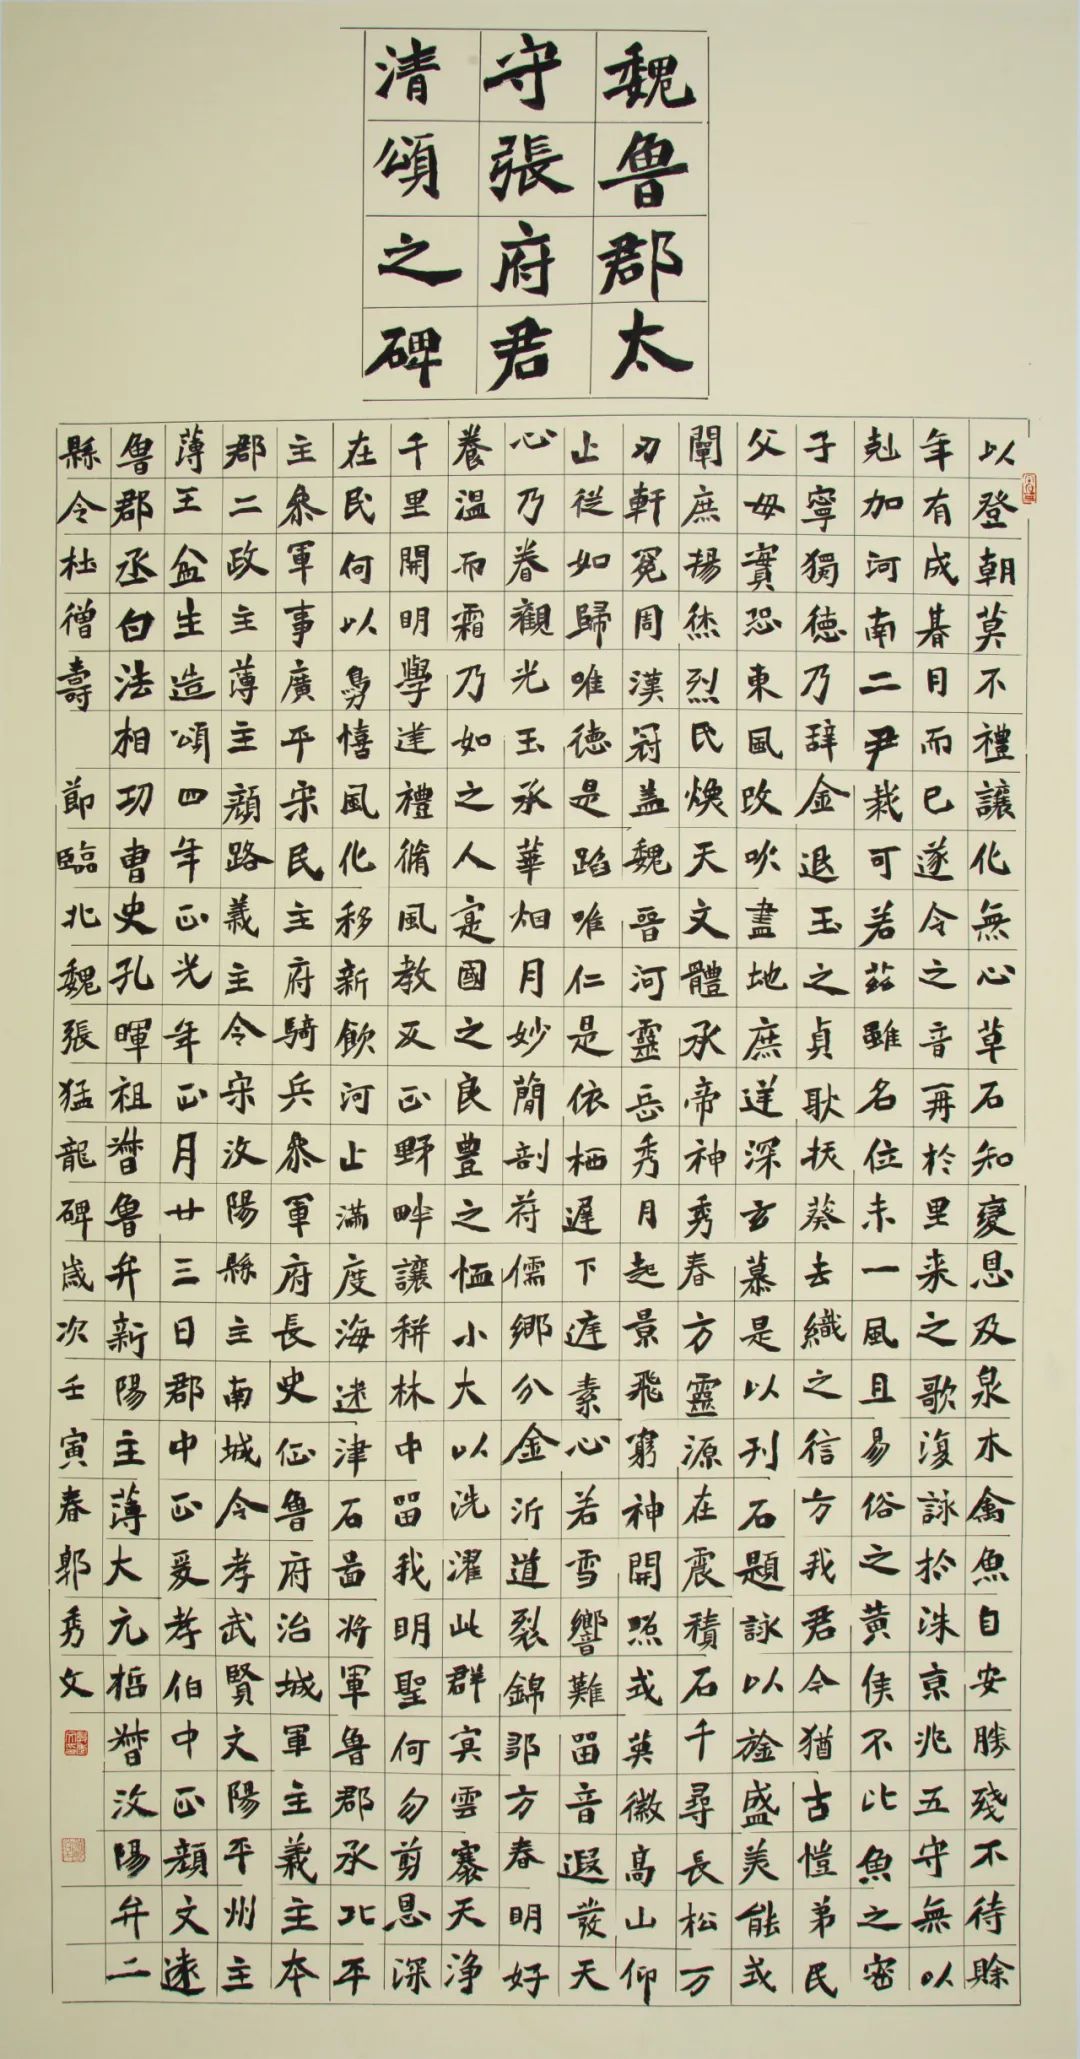 魏魯郡太
守張府君
清頌之碑
以登朝莫不禮讓化無心草石知變恩及泉木禽魚自安勝殘不待賒
年有成朞月而已遂令之音再於里来之歌復詠於洙京兆五守無以
剋加河南二尹裁可若茲雖名位未一風且易俗之黃侯不比魚之密
子寧獨德乃辭金退玉之貞耿拔葵去織之信方我君今猶古愷弟民
父毋實恐東風改吹盡地庶逆深玄慕是以刊石題詠以旌盛美能式
闡庶揚烋烈民煥天文體承帝神秀春方靈源在震積石千尋長松万
刃軒冕周漢冠盖魏晉河靈岳秀月起景飛窮神開照式英徽高山仰
止從如歸唯德是蹈唯仁是依栖遲下庭素心若雪響難留音遐發天
心乃眷觀光玉承華烟月妙簡剖符儒鄉分金沂道裂錦邹方春明好
養溫而霜乃如之人寔國之良豊之恤小大以洗濯此群冥雲褰天净
千里開明學建禮脩風教反正野畔讓耕林中留我明聖何勿剪恩深
在民何以憘風化移新飲河止滿度海迷津石啚将軍魯郡承北平
主叅軍事廣平宋民主府騎兵叅軍府長史征魯府治城軍主義主本
郡二政主薄主顔路義主令宋汶陽縣主南城令孝武賢文陽平州主
薄王盆生造頌四年正光年正月廿三日郡中正爰孝伯中正顔文遠
魯郡丞白法相功曹史孔暉祖朁魯弁新陽主薄大元哲朁汶陽弁二
縣令杜僧壽 節臨北魏張猛龍碑歲次壬寅春郭秀文